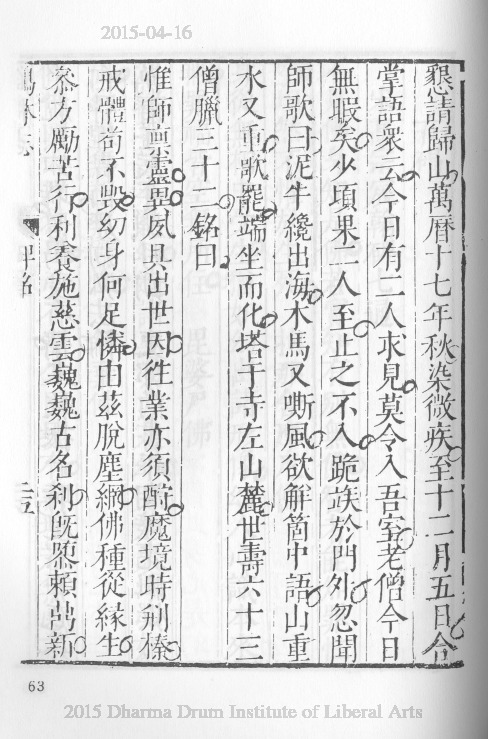 2015-04-16
懇請歸山萬曆十七年秋染微疾至十二月五日合
掌語衆云今日有二人求見莫令入吾室老僧今日
無暇矣少頃果二人至止之不入跪竢於門外忽聞
師歌曰泥牛纔出海木馬又嘶風欲解箇中語山重
水又重歌罷端坐而化塔于寺左山麓世壽六十三
僧臘三十二銘曰
惟師禀靈異夙具出世因徃業亦須酧魔境時荊榛
戒體苟不毁幻身何足憐由茲脫塵網佛種從緣生
叅方勵苦行利養施慈雲巍巍古名刹旣隳頼嵒新
63
2015 Dharma Drum Institute of Liberal Arts